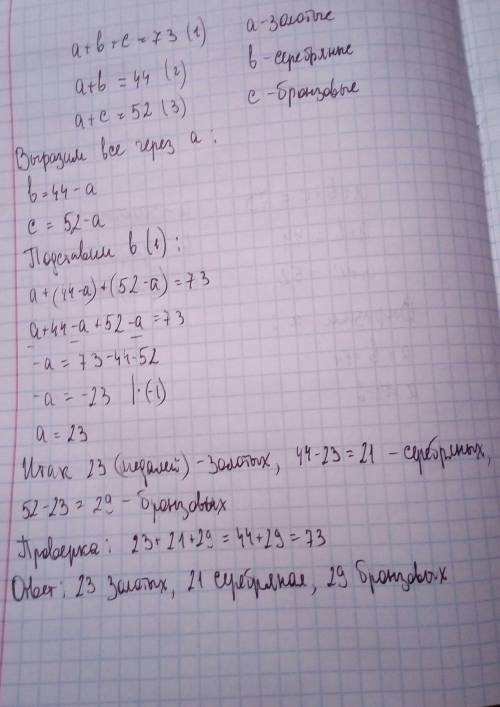 a+b+c=73 (1) a-золотые
a+b =44 (2) b-серебряные
a+c=52 (3) c-бронзовые
Выразим все через a:
b=44-a
c=52-a
Подставим в (1):
a+(44-a)+(52-a)=73
a+44-a+52-a=73
-a=73-44-52
-a=-23 |·(-1)
a=23
Итак 23 (медалей)-золотых, 44-23=21 - серебряных,
52-23=29-бронзовых
Проверка: 23+21+29=44+29=73
Ответ: 23 золотых, 21 серебряная, 29 бронзовых